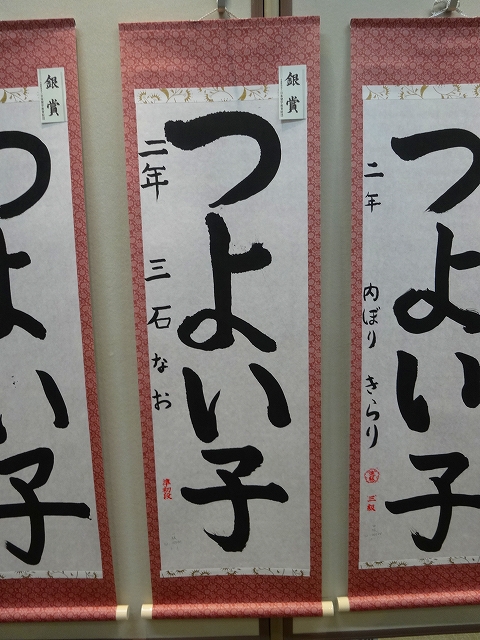 銀賞
つよい子
二年 内ぼり きらり
三級
銀賞
つよい子
二年 三石 なお
準初段
つよい子